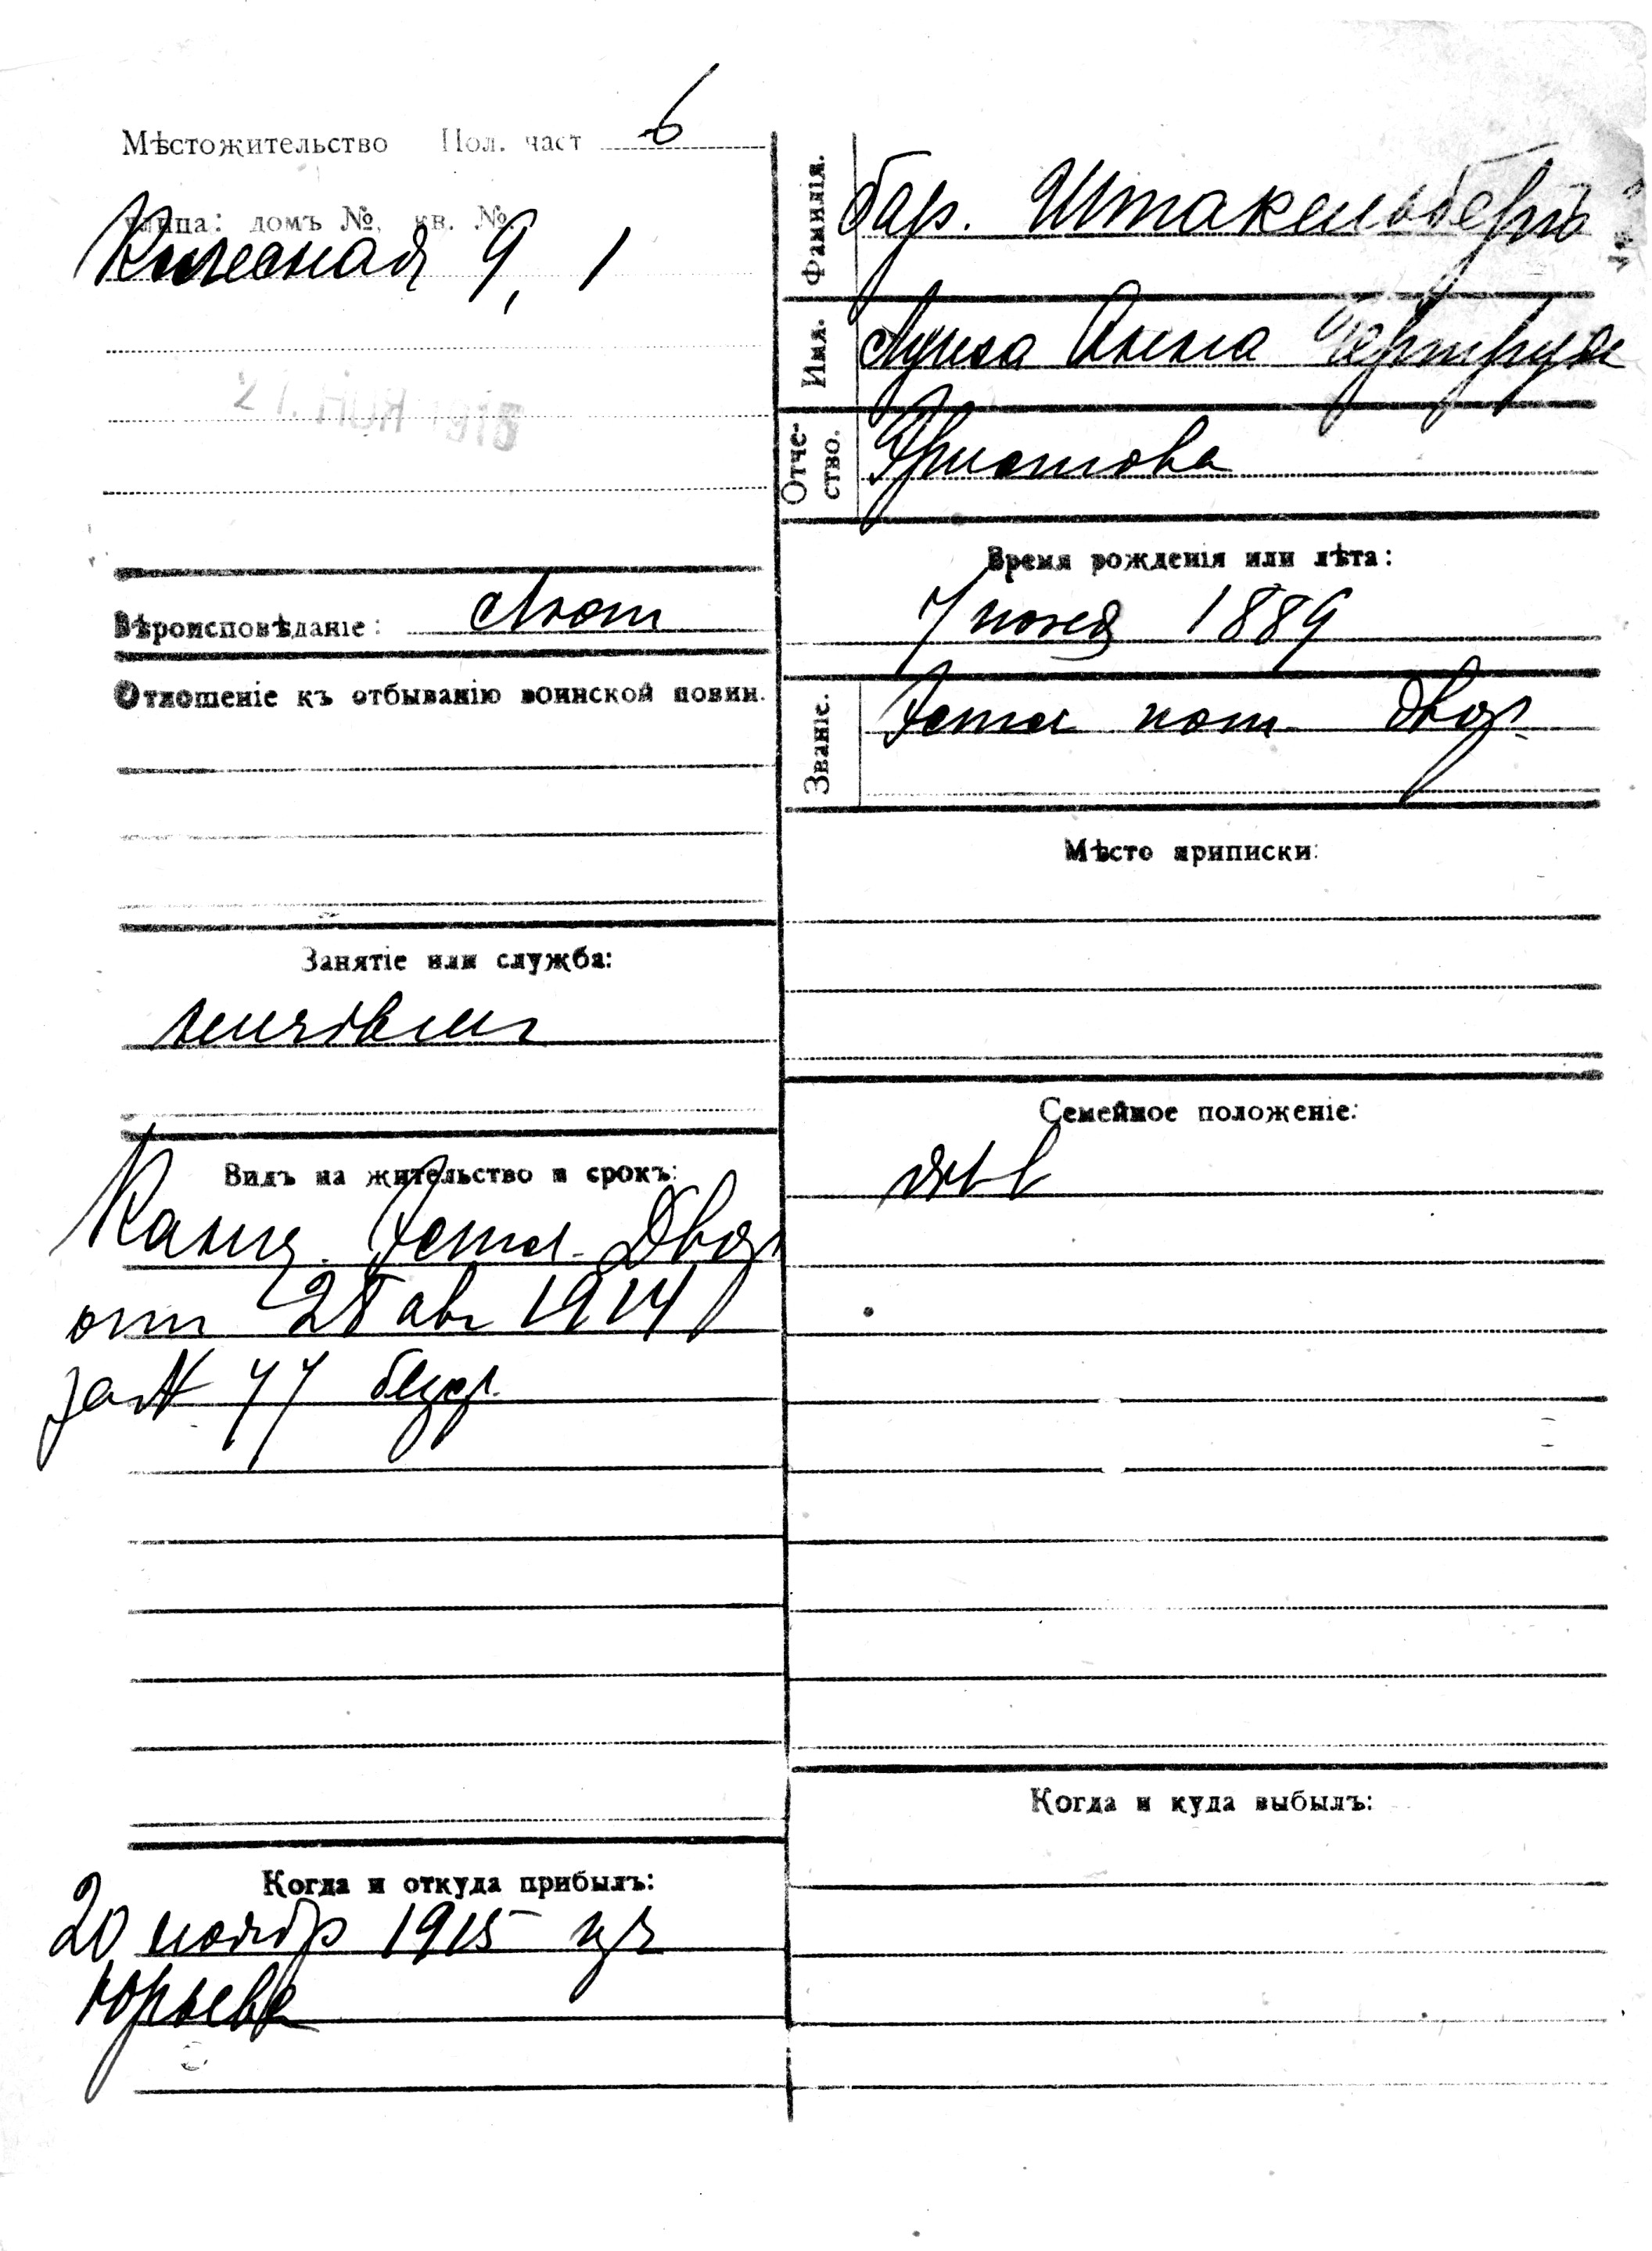 Мѣстожительство Пол. част 6
улица: домъ №, кв. №
Колесная 9, 1
21. НОЯ 1915
Вѣроисповѣданіе: Лют
Отношеніе къ отбыванію воинской повин.
Занятіе или служба:
Видъ на жительство и срокъ:
Канц. Эстл. Двор
отъ 28 авг 1914
за № 77 бezср.
Когда и откуда прибылъ:
20 ноябр 1915 изъ
Юрьева
Фамилія. бар. Штакельбергъ
Имя. Луиза Анна Гертруда
Отче-
ство. Христова
Время рожденія или лѣта:
7 1889
Званіе. Эстл пот двор.
Мѣсто приписки:
Семейное положеніе:
дѣв
Когда и куда выбылъ: